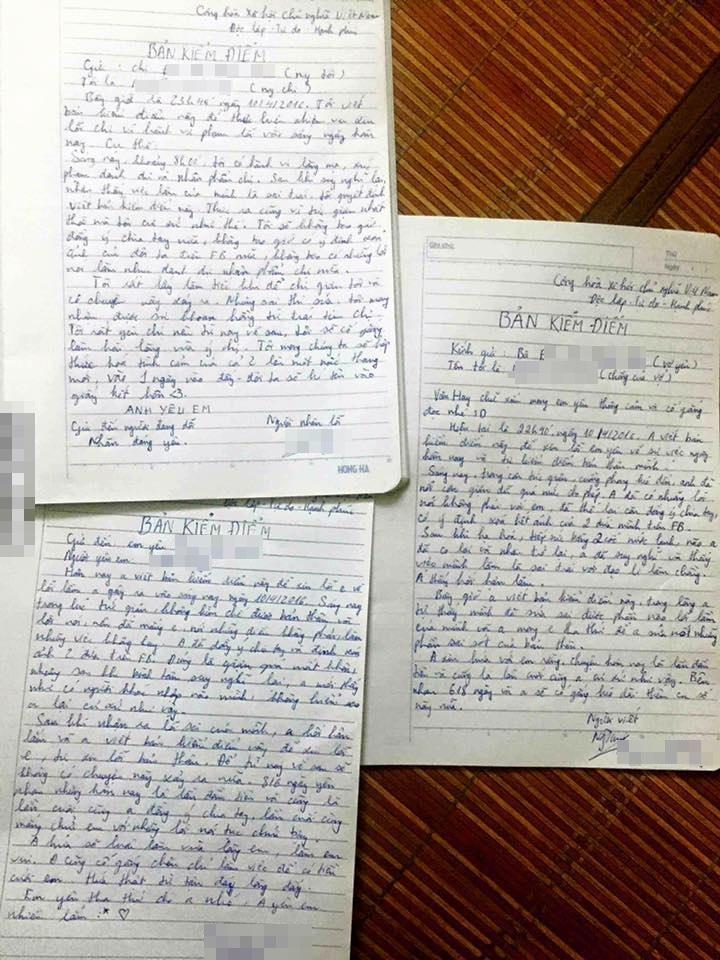 Cộng hòa Xã hội chủ nghĩa Việt Nam
Độc lập - Tự do - Hạnh phúc
BẢN KIỂM ĐIỂM
Gửi: chị
Tôi là
Bây giờ là 23h45 ngày 10/4/2016. Tôi viết
bản kiểm điểm này để
lỗi chị vì hành vi phạm lỗi vào sáng ngày hôm
nay. Cụ thể:
Sáng nay, khoảng 8h00, tôi có hành vi lăng mạ, xúc
phạm danh dự và nhân phẩm chị. Sau khi suy nghĩ lại,
nhận thấy việc làm của mình là sai trái, tôi quyết định
viết bản kiểm điểm này. Thực ra cũng vì tức giận nhất
thời mà tôi cư xử như thế. Tôi sẽ không bao giờ
đồng ý chia tay nữa, không bao giờ có ý định xóa
ảnh của đôi ta trên FB nữa, không bao có những lời
nói làm nhục danh dự nhân phẩm chị nữa.
Tôi rất lấy làm tiếc khi để chị giận tôi và
có chuyện này xảy ra. Nhưng sai thì sửa, tôi mong
nhận được sự khoan hồng từ trái tim chị.
Tôi rất yêu chị nên từ nay về sau, tôi sẽ cố gắng
làm hài lòng vừa ý chị. Tôi mong chúng ta sẽ tiếp
thức hóa tình cảm của cả 2 lên một nấc thang
mới, vào 1 ngày nào đấy đôi ta sẽ kí tên vào
giấy kết hôn <3.
ANH YÊU EM
Gửi đến người đang dỗi
Nhận đang yêu.
Người nhận lỗi
HONG HA
Thứ
Ngày
Cộng hòa Xã hội chủ nghĩa Việt Nam
Độc lập - Tự do - Hạnh phúc
BẢN KIỂM ĐIỂM
Kính gửi: Bà B (vợ yêu)
Tên tôi là (chồng của vợ)
Văn Hay chữ xấu mong em yêu thông cảm và cố gắng
đọc nhé :D
Hiện tại là 22h40' ngày 10/4/2016. A viết bản
kiểm điểm này để xin lỗi em yêu về sự việc ngày
hôm nay và tự kiểm điểm bản thân mình.
Sáng nay, trong cơn tức giận, cuồng phong kéo đến, anh đã
nổi cơn giận dữ quá mức cho phép. A đã có những lời
nói không phải với em, đã thế lại còn đồng ý chia tay,
có ý định xóa hết ảnh của 2 đứa mình trên FB.
Sau khi hạ hỏa, tiếp xúc bằng 2 cốc nước lạnh, não a
đã co lại và nhăn trở lại, a đã suy nghĩ và thấy
việc mình làm là sai trái với đạo lí làm chồng.
A thấy hối hận lắm.
Bây giờ a viết bản kiểm điểm này, trong lòng a
tự thấy mình đã sửa sai được phần nào lỗi lầm
của mình và a mong e tha thứ để a sửa một những
phần sai sót của bản thân.
A xin hứa với em rằng chuyện hôm nay là lần đầu
tiên và cũng là lần cuối cùng a cư xử như vậy. Bên
nhau 618 ngày và a sẽ cố gắng kéo dài thêm con số
này nữa.
Người viết
Độc lập - Tự do - Hạnh phúc
BẢN KIỂM ĐIỂM
Gửi đến: em yêu
Người yêu em:
Hôm nay a viết bản kiểm điểm này để xin lỗi e về
lỗi lầm a gây ra vào sáng nay ngày 10/4/2016. Sáng nay
trong lúc tức giận, không kìm chế được bản thân với
lời nói, nên đã mắng e, nói những điều không phải, làm
những việc không hay. A đã đồng ý chia tay và định xóa
ảnh 2 đứa trên FB. Đúng là giận quá mất khôn,
nhưng sau khi bình tâm suy nghĩ lại, a mới thấy
như có người khác nhập vào mình, không hiểu sao
a lại cư xử như vậy.
Sau khi nhận ra lỗi sai của mình, a hối hận
lắm và a viết bản kiểm điểm này để xin lỗi
e, tự xin lỗi bản thân. Để từ nay về sau sẽ
không có chuyện này xảy ra nữa. 618 ngày yêu
nhau nhưng hôm nay là lần đầu tiên và cũng là
lần cuối cùng a đồng ý chia tay, lần cuối cùng
mắng chử em với những lời nói tục chửi bậy.
A hứa sẽ luôn làm vừa lòng em, làm em
vui. A cũng cố gắng chăm chỉ làm việc để có tiền
cưới em. Hứa thật từ tận đáy lòng đấy.
Em yêu tha thứ cho a nhé. A yêu em
nhiều lắm :* ♡